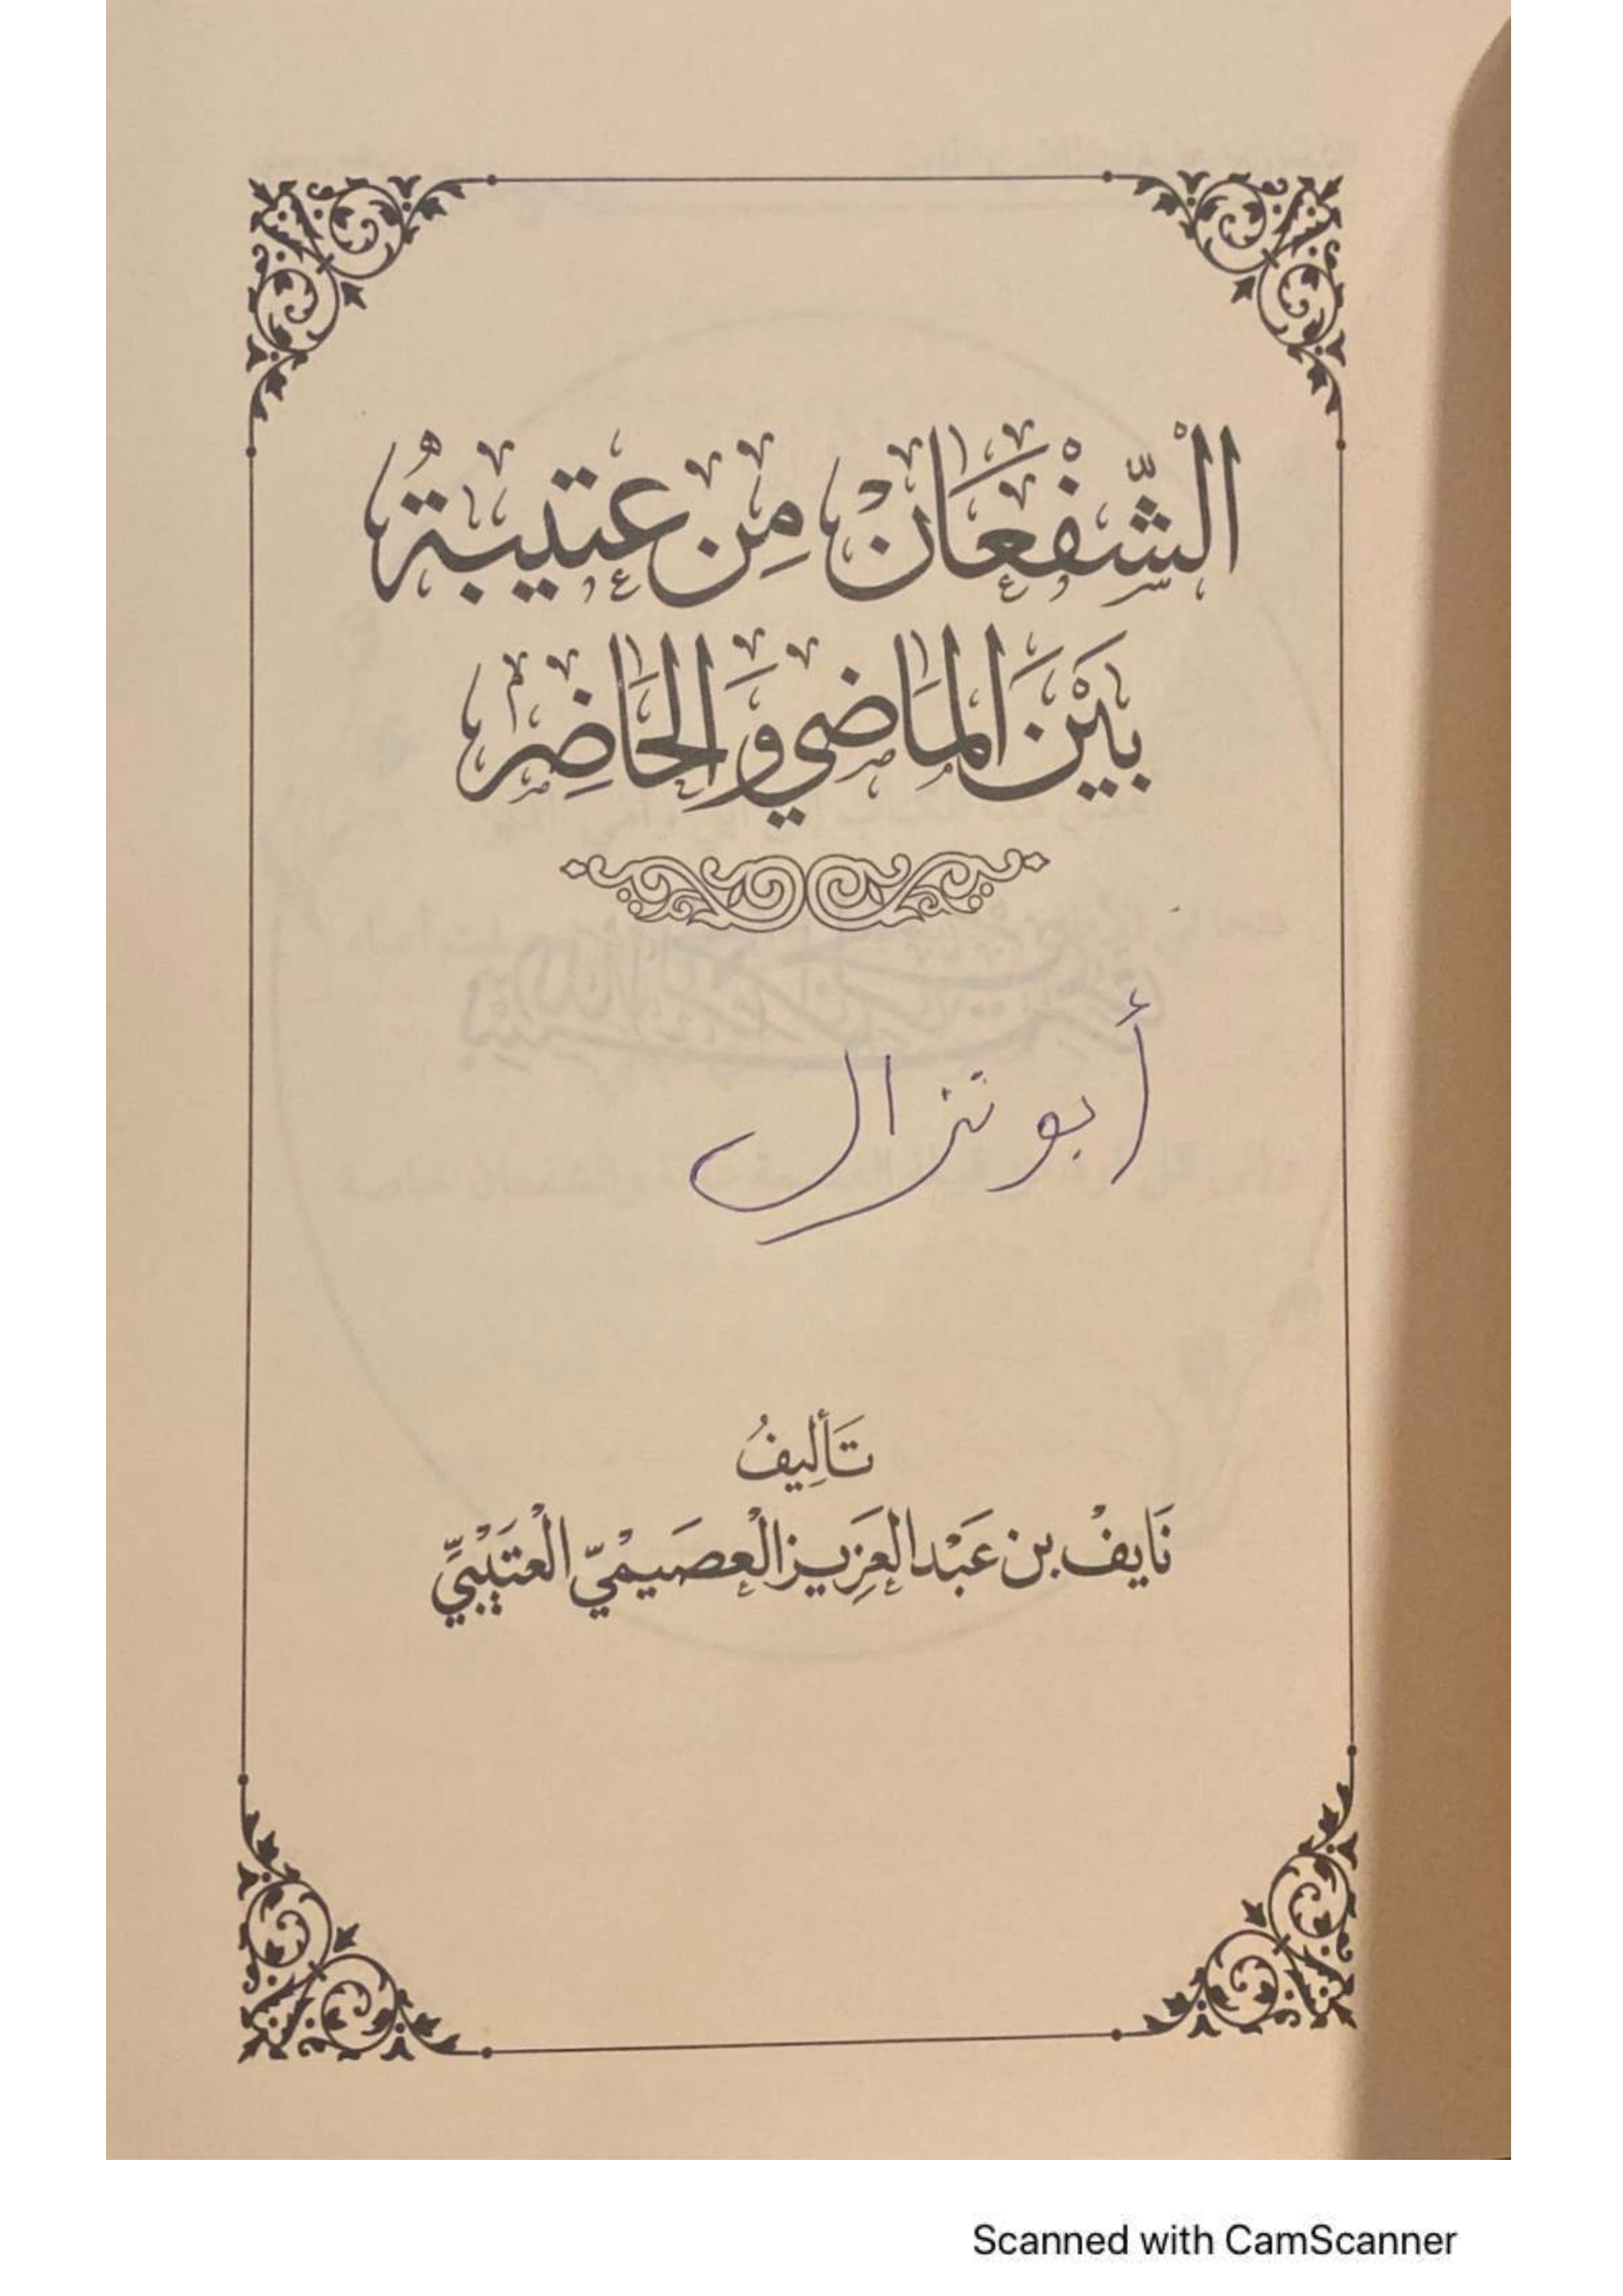 الْشّفْعَانْ مِن عتيبةُ
بَيْنَ المَاضي وَالحَاضِر
أبو نزال
تَأليفُ
نَايفْ بن عَبْد العَزِيز العصَيْميّ الْعتَيْبيِّ
Scanned with CamScanner